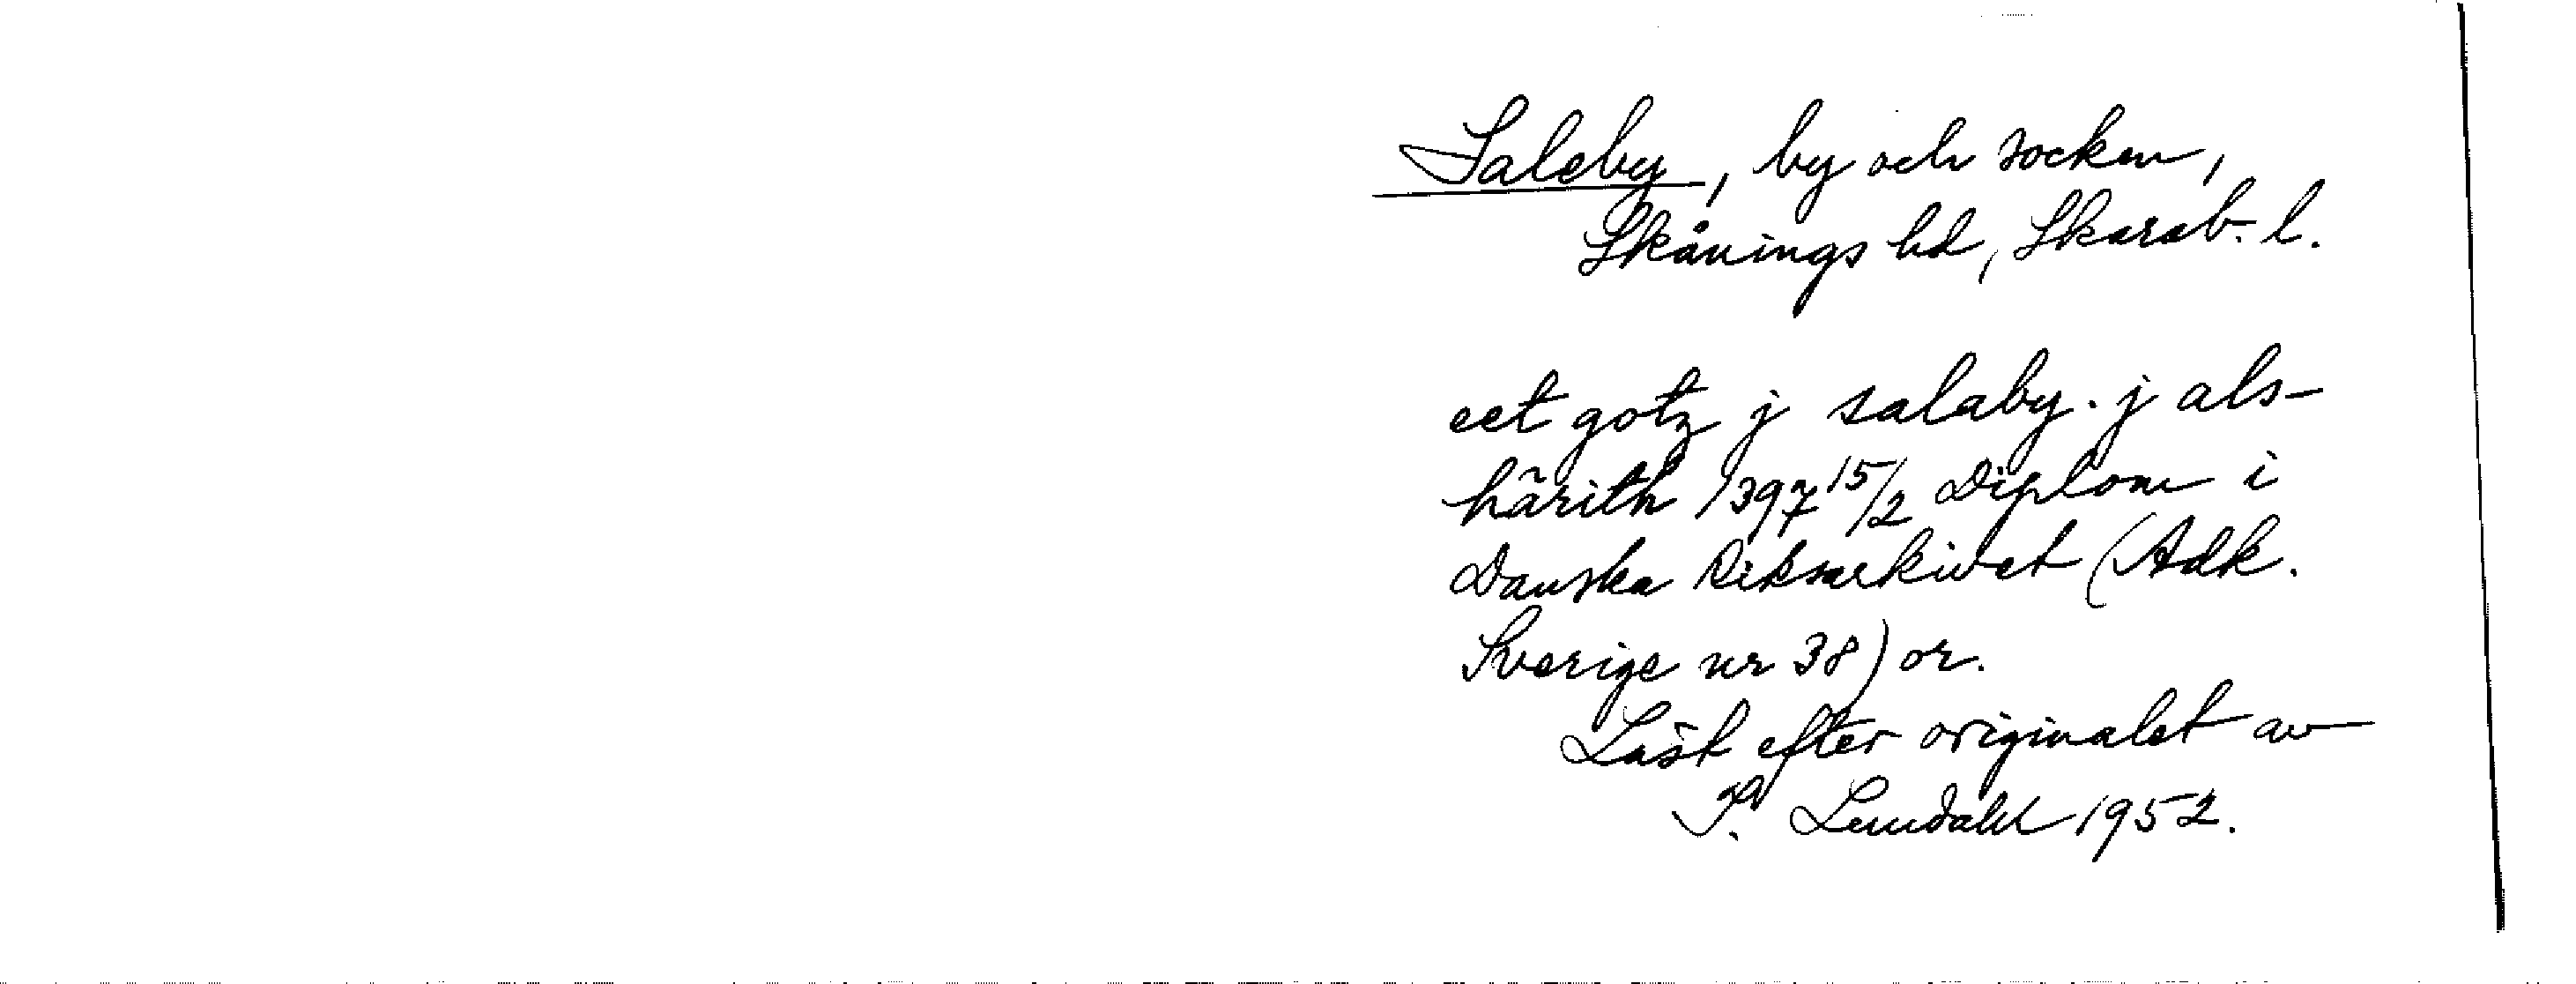 Saleby, by och socken,
Skånings hd, Skarab. l.
eet gotz j salaby. j als-
härith 1397 15/2 Diplom i
Danska Riksarkivet (Adk.
Sverige nr 38) or.
Läst efter originalet av
P. Lundahl 1952.